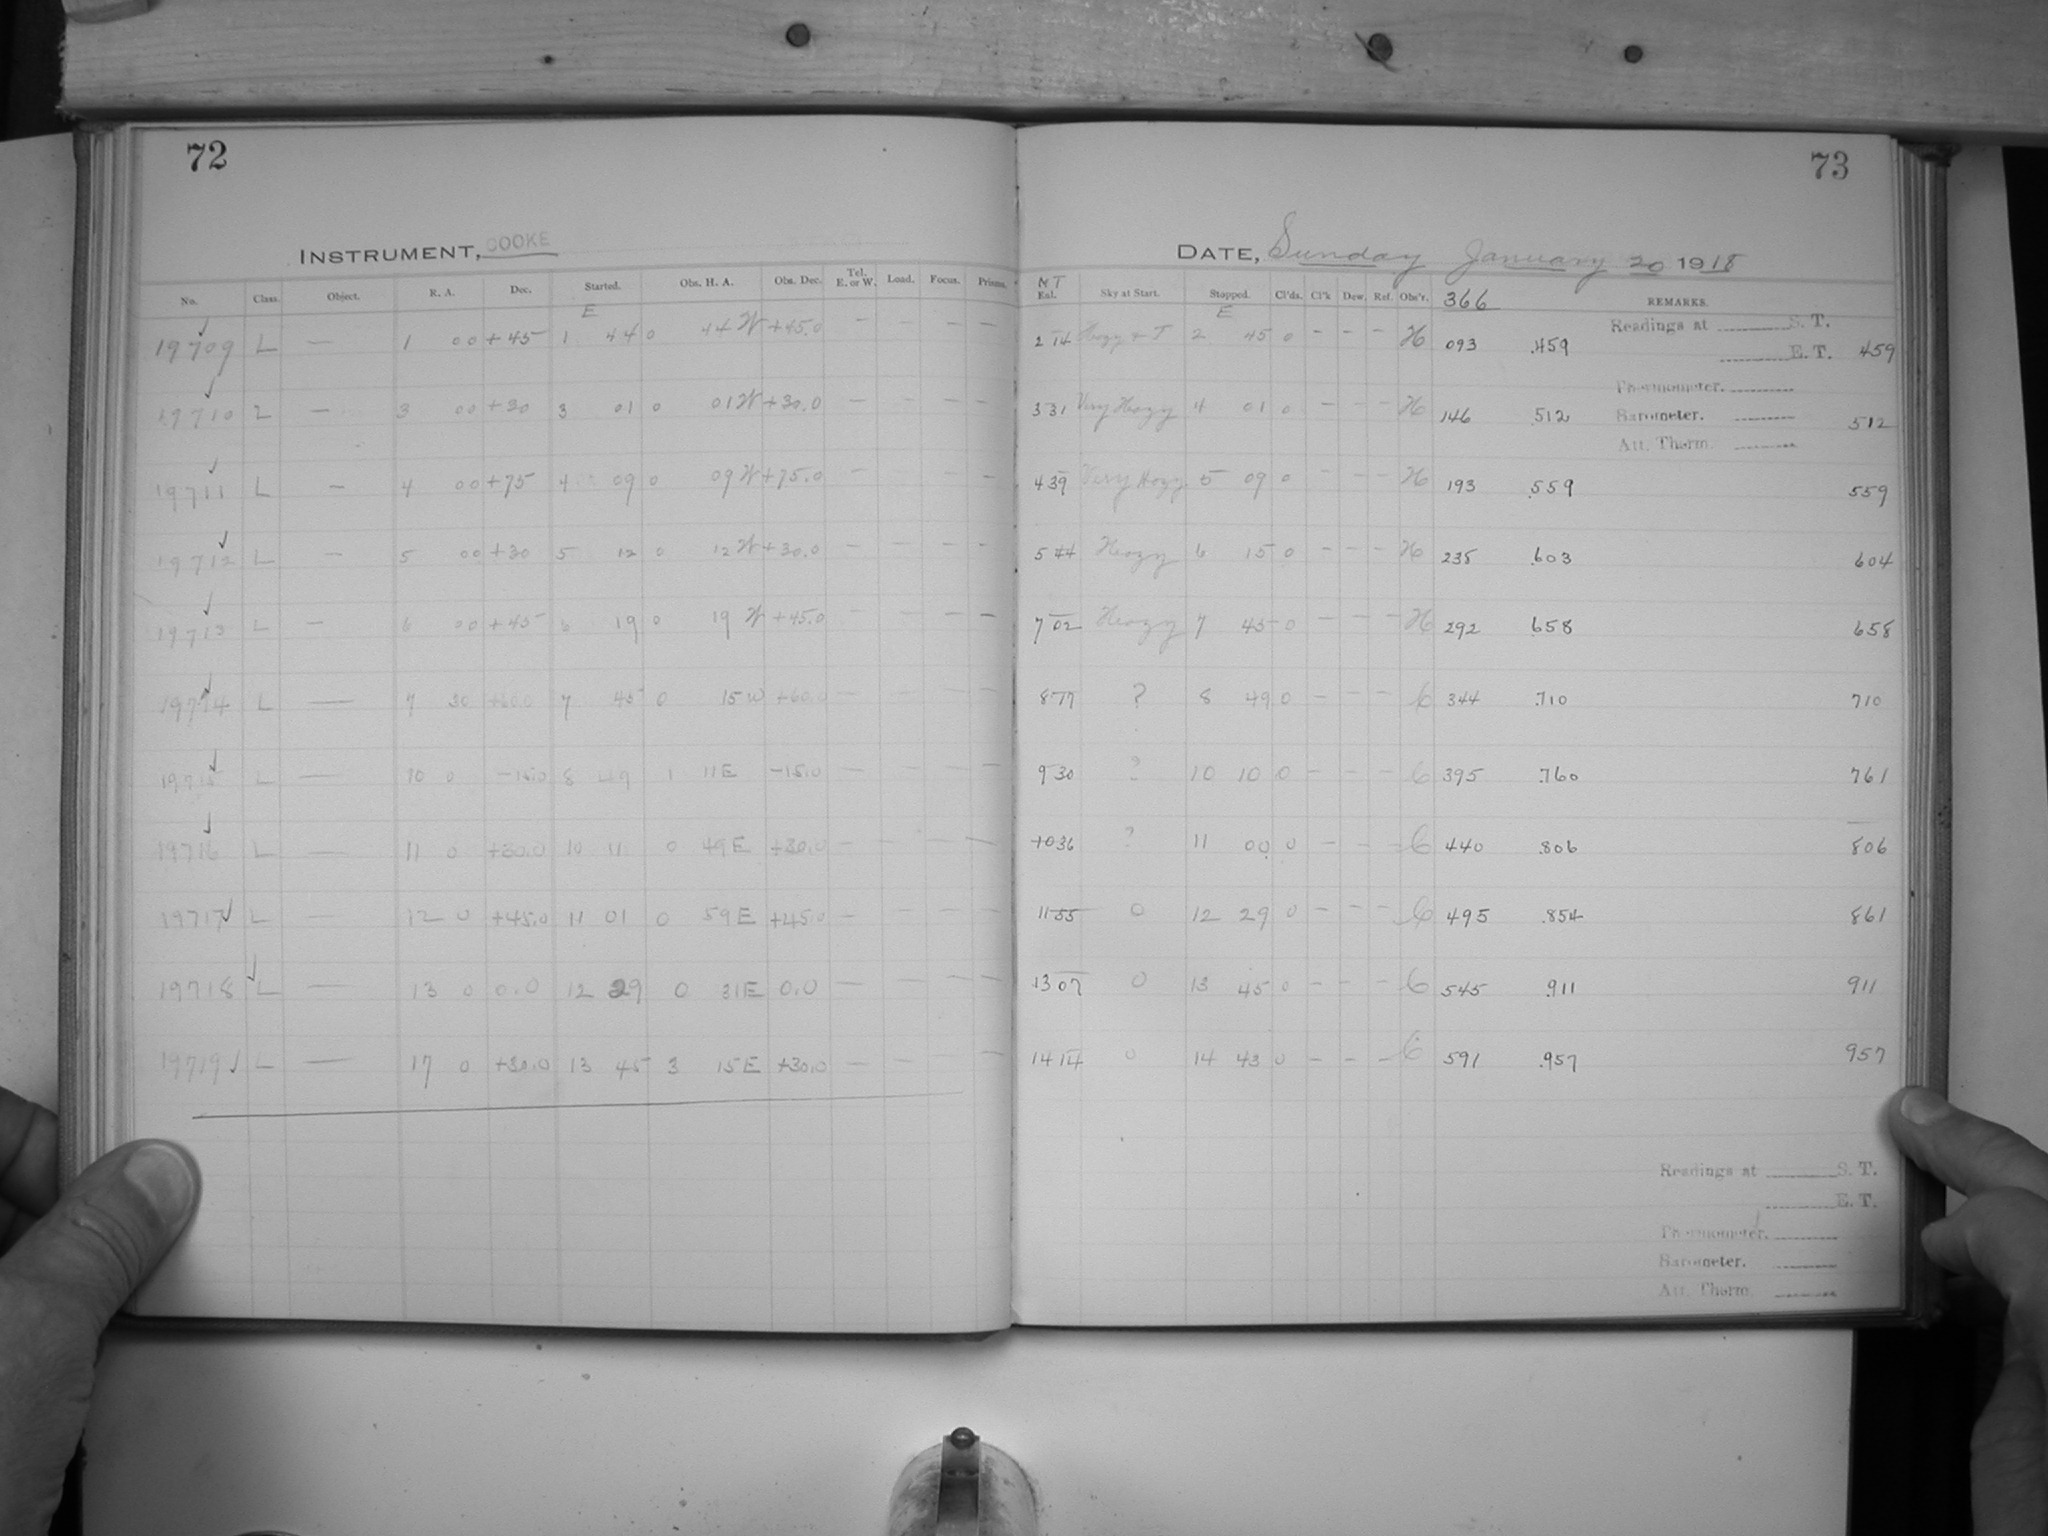 72
INSTRUMENT, COOKE
No. Class. Object. R. A. Dec. Started. Obs. H. A. Obs. Dec. Tel. E. or W. Load. Focus. Prisms.
E
19709 L — 1 00 +45 1 44 0 44 W +45.0 — — — —
19710 L — 3 00 +30 3 01 0 01 W +30.0 — — — —
19711 L — 4 00 +75 4 09 0 09 W +75.0 — —
19712 L — 5 00 +30 5 12 0 12 W +30.0 — — — —
19713 L — 6 00 +45 6 19 0 19 W +45.0 — — — —
19714 L — 7 30 +60.0 7 45 0 15 W +60.0 — — — —
19715 L — 10 0 -15.0 8 49 1 11 E -15.0 — — — —
19716 L — 11 0 +30.0 10 11 0 49 E +30.0 — — — —
19717 L — 12 0 +45.0 11 01 0 59 E +45.0 — — — —
19718 L — 13 0 0.0 12 29 0 31 E 0.0 — — — —
19719 L — 17 0 +30.0 13 45 3 15 E +30.0 — — —
73
DATE, Sunday January 20 1918
MT
Sky at Start. Stopped. Cl'ds. Cl'k Dew. Ref. Obs'r. 366 REMARKS.
E
Readings at S. T.
2 14 Hazy + T 2 45 0 — — — H 093 .459 E. T. 459
Thermometer.
3 31 Very Hazy 4 01 0 — — — H 146 .512 Barometer. 512
Att. Therm.
4 39 Very Hazy 5 09 0 — — — H 193 .559 559
5 44 Hazy 6 15 0 — — — H 238 .603 604
7 02 Hazy 7 45 0 — — — H 292 .658 658
8 17 ? 8 49 0 — — — C 344 .710 710
9 30 ? 10 10 0 — — — C 395 .760 761
10 36 ? 11 00 0 — — — C 440 .806 806
11 55 0 12 29 0 — — — C 495 .854 861
13 07 0 13 45 0 — — — C 545 .911 911
14 14 0 14 43 0 — — — C 591 .957 957
Readings at S. T.
E. T.
Thermometer.
Barometer.
Att. Therm.